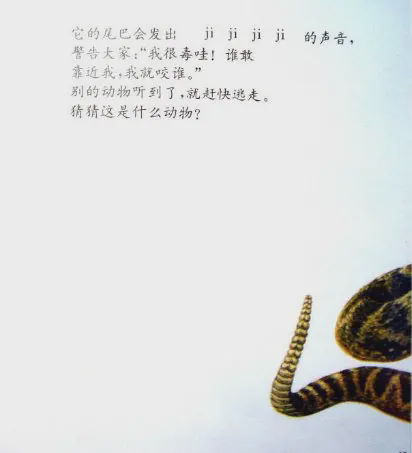 它的尾巴会发出 ji ji ji ji 的声音，
警告大家：“我很毒哇！谁敢
靠近我，我就咬谁。”
别的动物听到了，就赶快逃走。
猜猜这是什么动物？